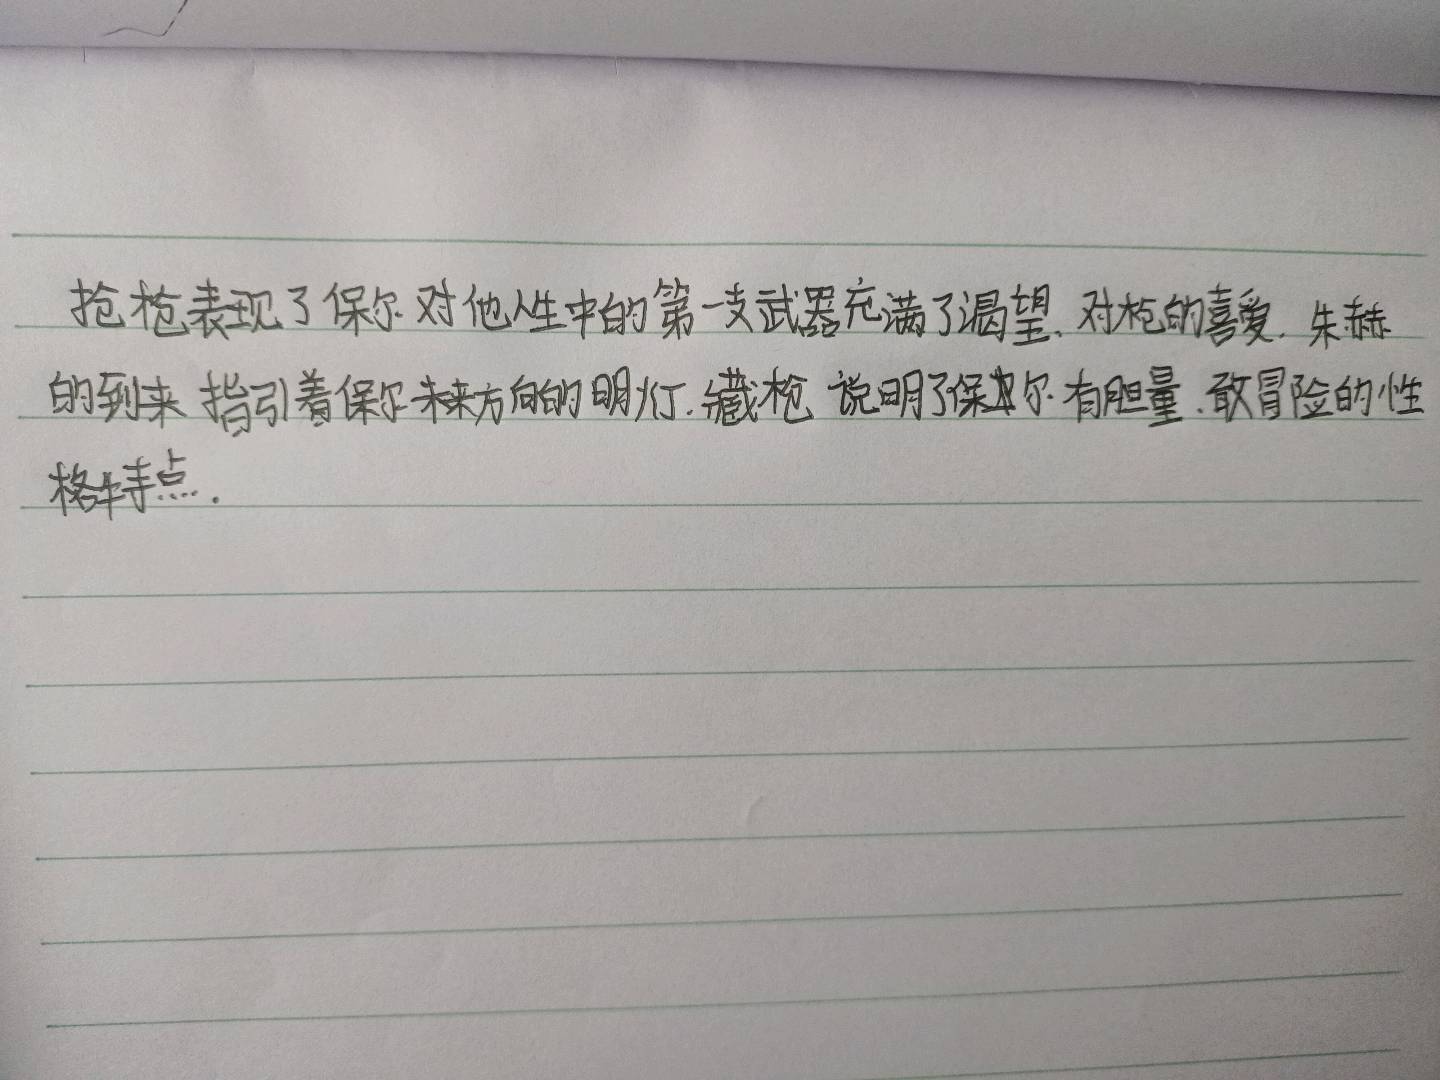 抢枪表现了保尔对他人生中的第一支武器充满了渴望、对枪的喜爱.朱赫
的到来指引着保尔未来方向的明灯.藏枪说明了保尔有胆量、敢冒险的性
格特点.